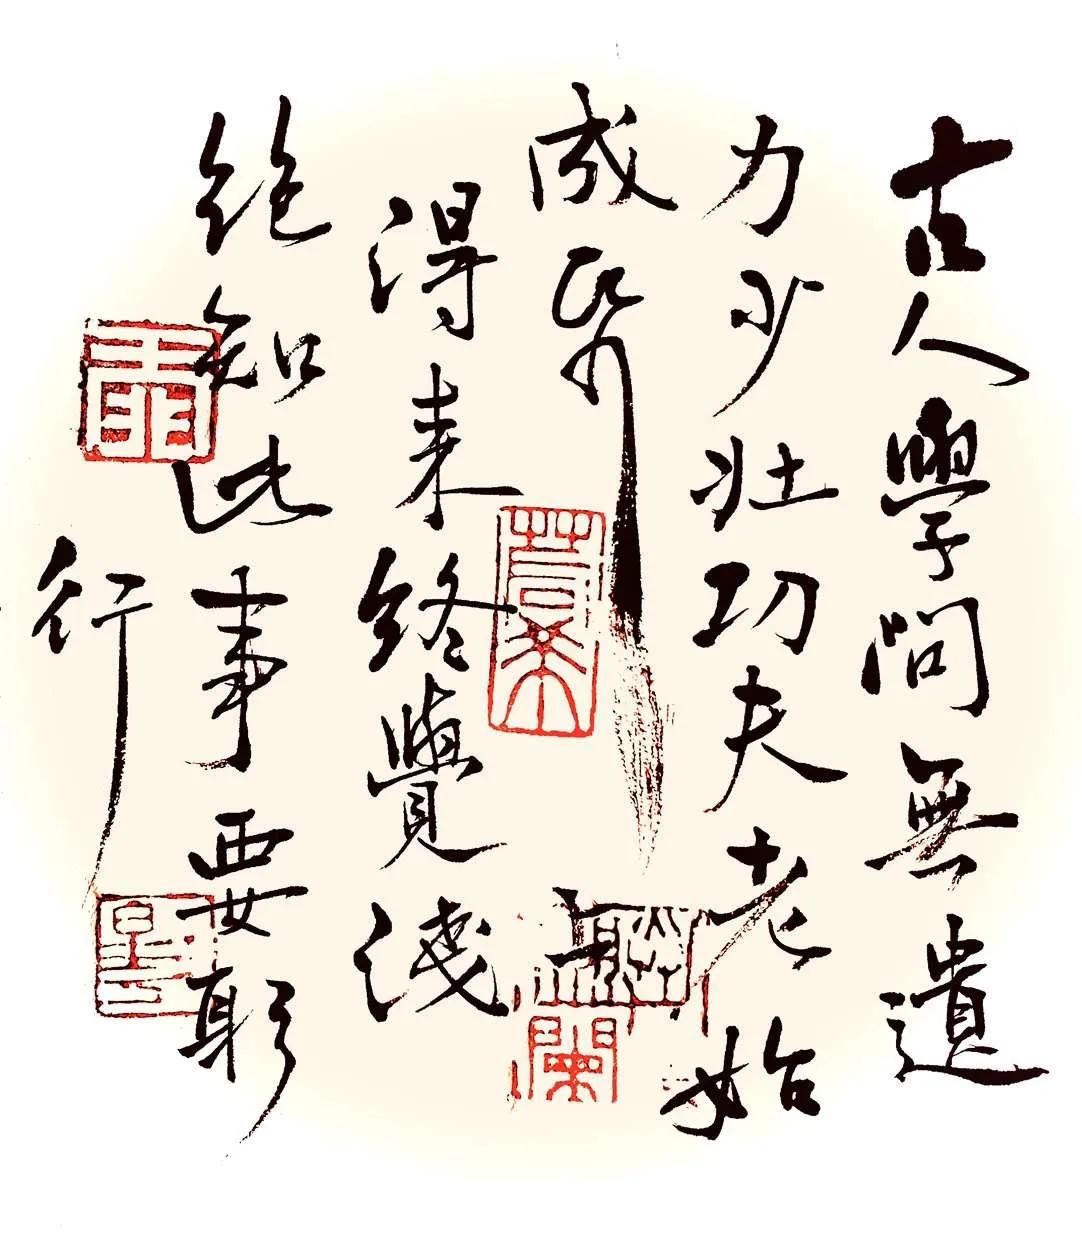 古人學問無遺
力少壯功夫老始
成帋上
得來終覺淺
絶知此事要躬
行